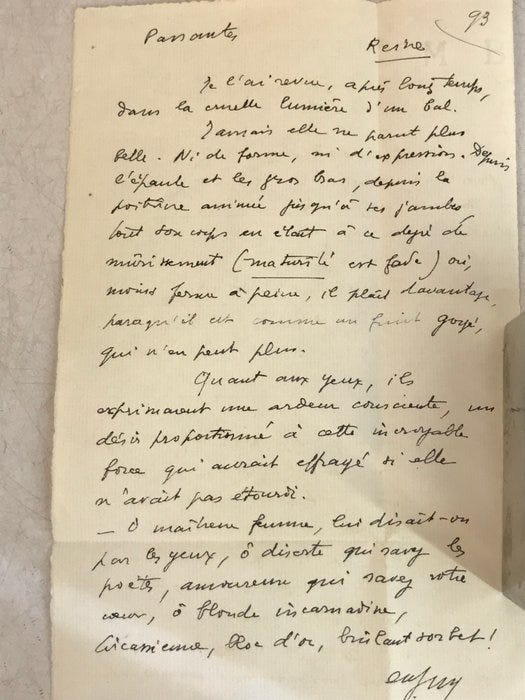 93
Passantes
Reine
Je l'ai revue, après longtemps,
dans la cruelle lumière d'un bal.
Jamais elle ne parut plus
belle. Ni de forme, ni d'expression. Depuis
l'épaule et les gros bras, depuis la
poitrine animée jusqu'à ses jambes
tout son corps en était à ce degré de
mûrissement (maturité est fade) où,
moins ferme à peine, il plaît davantage,
parcequ'il est comme un fruit gorgé,
qui n'en peut plus.
Quant aux yeux, ils
exprimaient une ardeur consciente, un
désir proportionné à cette incroyable
force qui aurait effrayé si elle
n'avait pas étourdi.
— Ô maîtresse femme, lui disait-on
par les yeux, ô diserte qui savez les
poètes, amoureuse qui savez votre
cœur, ô blonde incarnadine,
Circassienne, bloc d'or, brûlant sorbet !